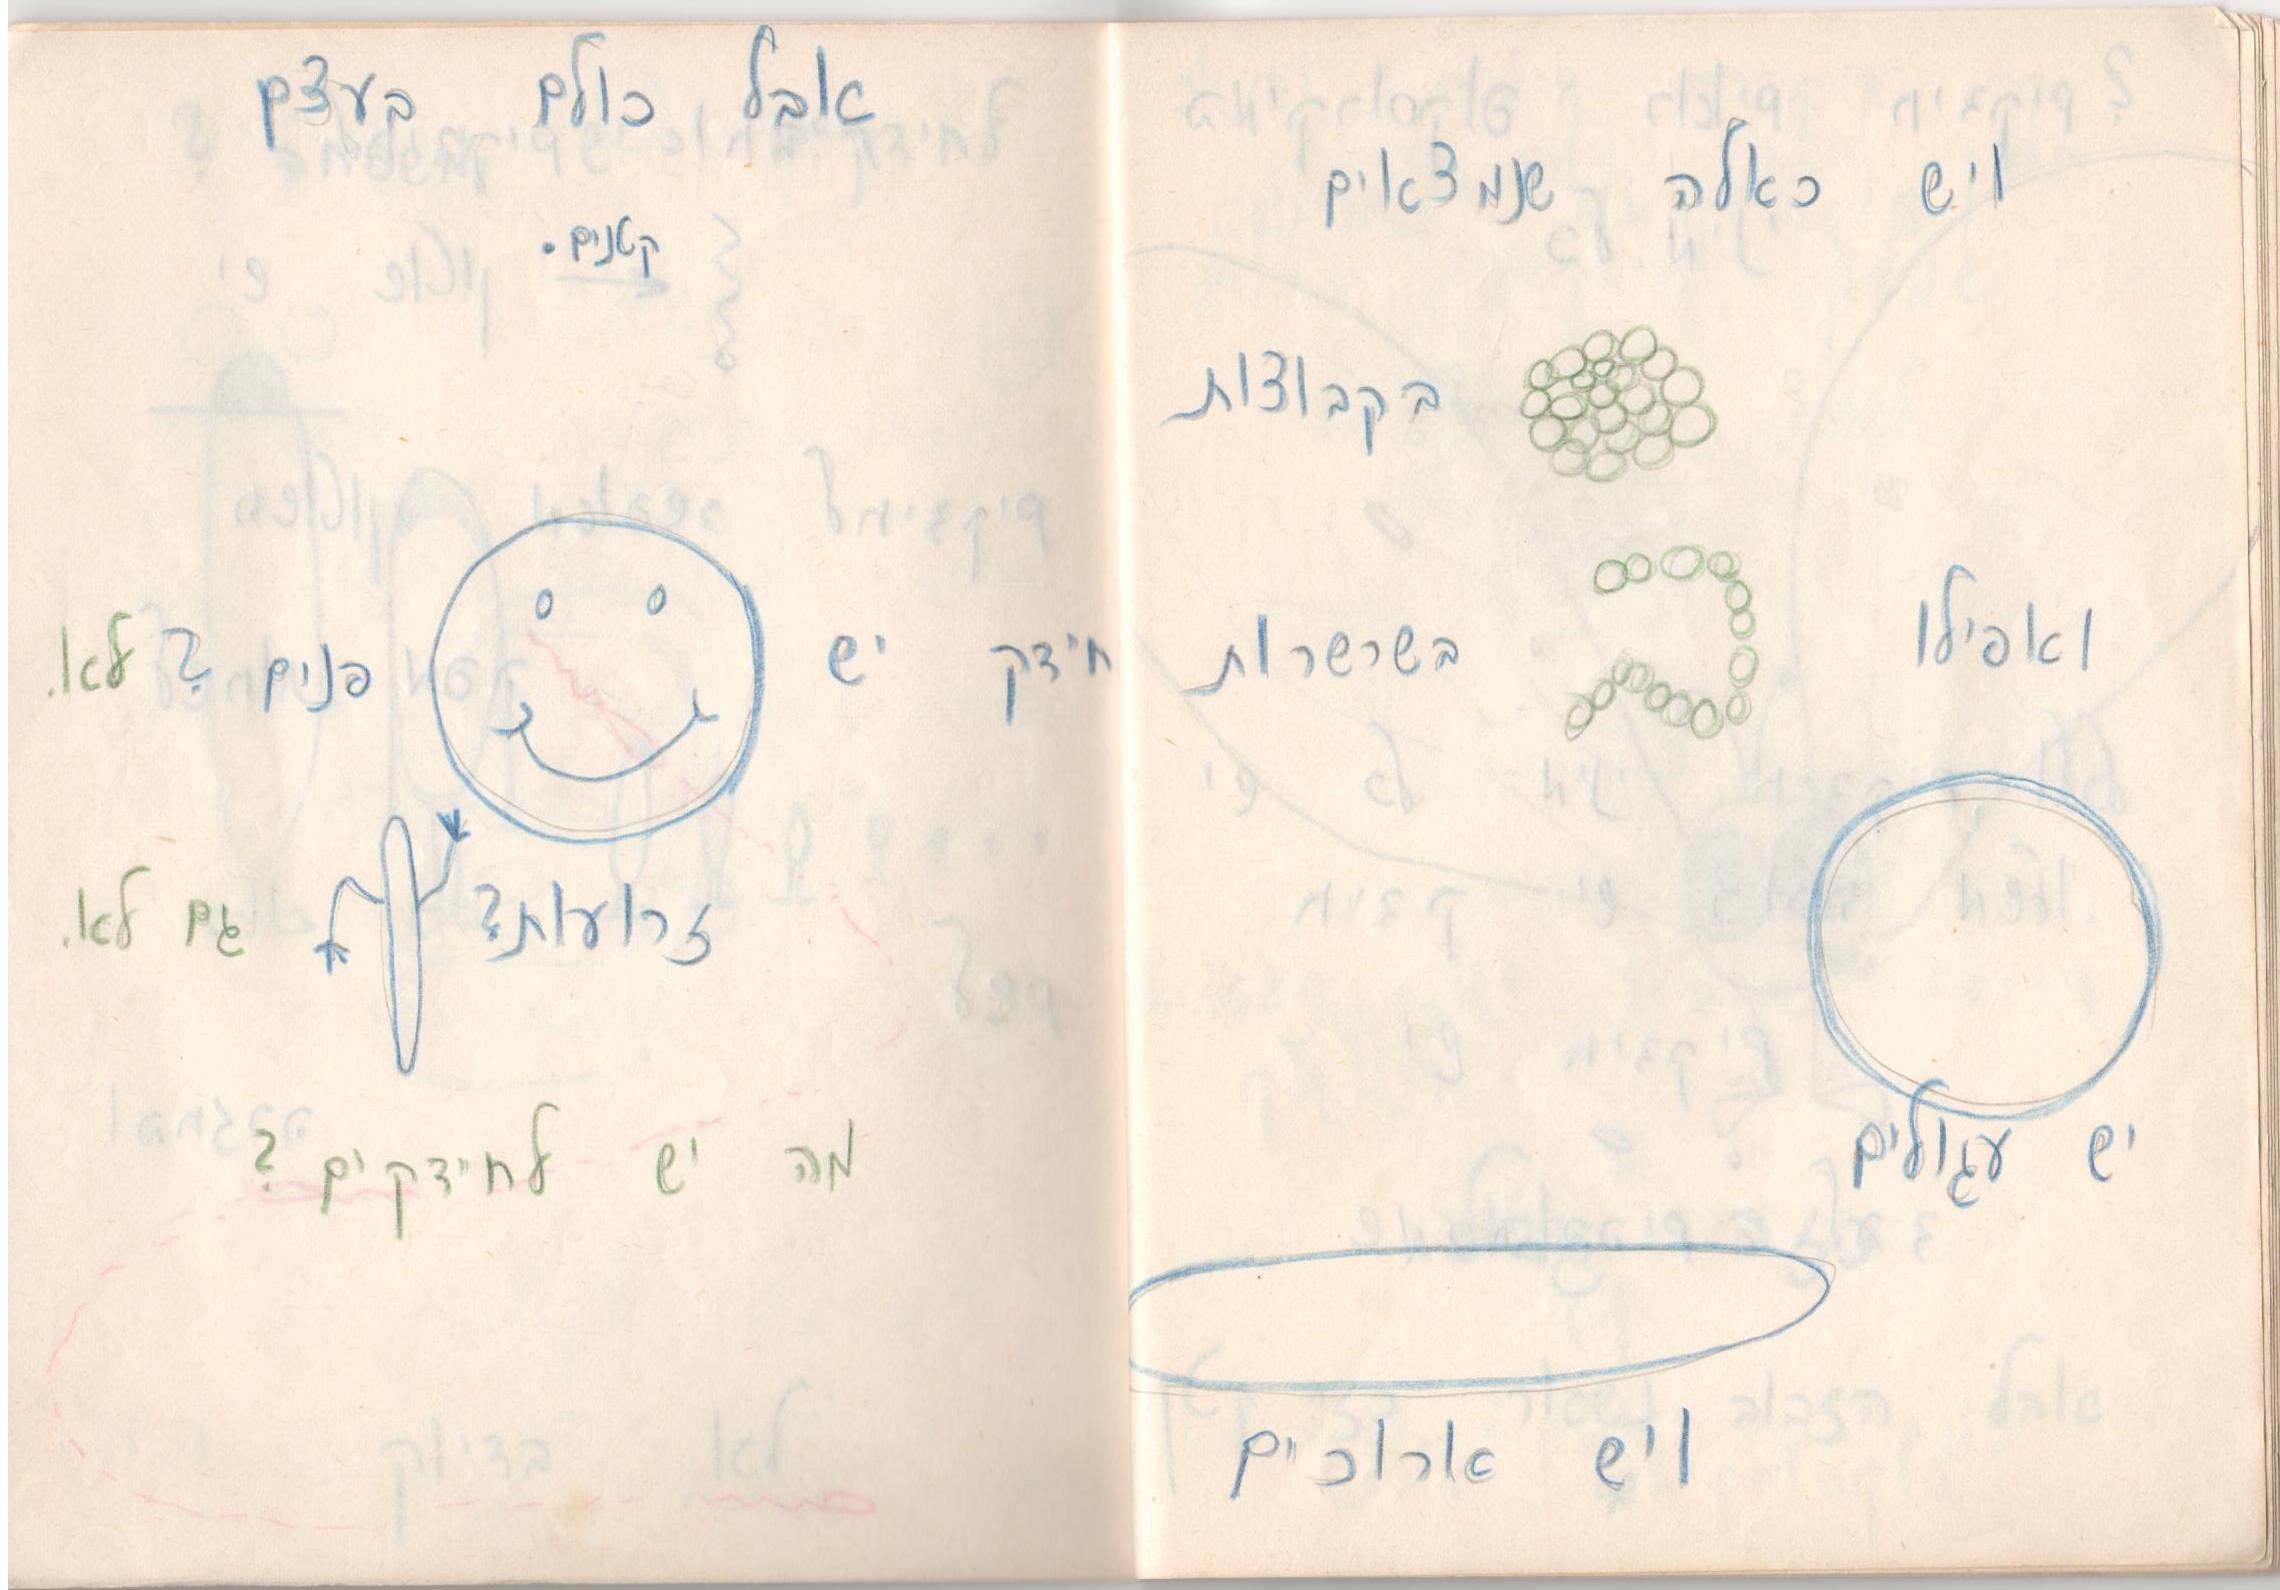 ויש כאלה שנמצאים
בקבוצות
ואפילו בשרשרות
יש עגולים
ויש ארוכים
אבל כולם בעצם
קטנים.
חידק יש פנים? לא.
זרועות? גם לא.
מה יש לחידקים?